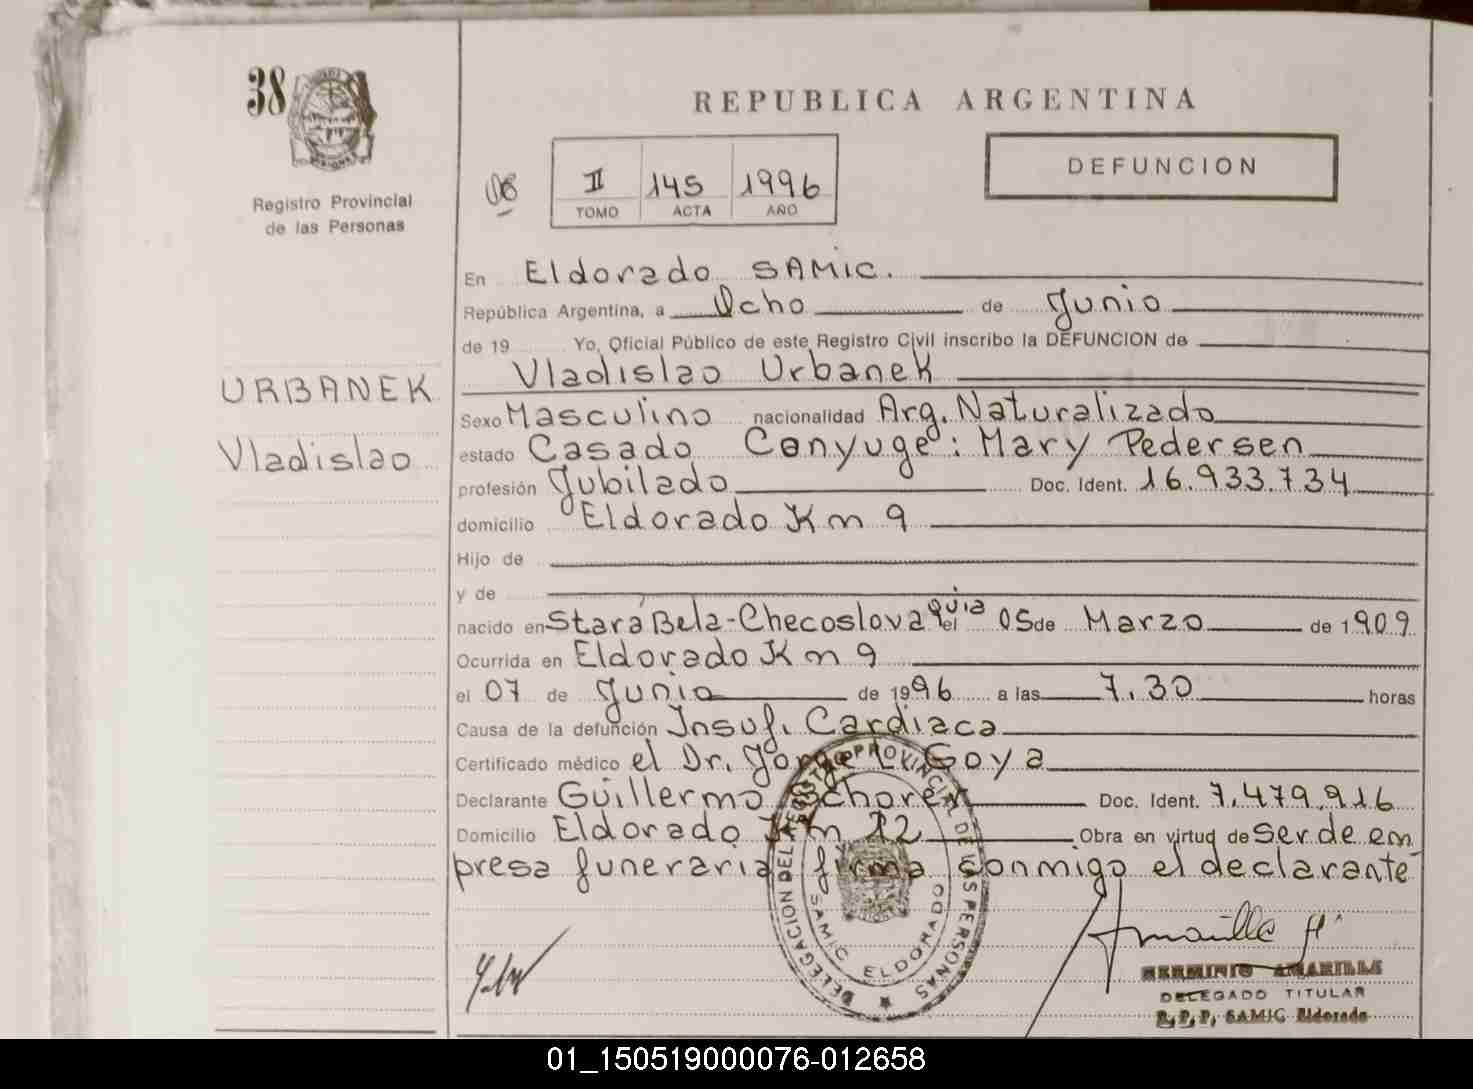 38
Registro Provincial
de las Personas
URBANEK
Vladislao
REPUBLICA ARGENTINA
DEFUNCION
II 145 1996
TOMO ACTA AÑO
En Eldorado SAMIC.
República Argentina, a Ocho de Junio
de 19 Yo, Oficial Público de este Registro Civil inscribo la DEFUNCION de
Vladislao Urbanek
Sexo Masculino nacionalidad Arg. Naturalizado
estado Casado Conyuge: Mary Pedersen
profesión Jubilado Doc. Ident. 16.933.734
domicilio Eldorado Km 9
Hijo de
y de
nacido en Stará Bela-Checoslovaquia el 05 de Marzo de 1909
Ocurrida en Eldorado Km 9
el 07 de Junio de 1996 a las 7.30 horas
Causa de la defunción Insuf. Cardiaca
Certificado médico el Dr. Jorge L. Goya
Declarante Guillermo Ochoren Doc. Ident. 7.479.916
Domicilio Eldorado Km 12 Obra en virtud de ser de em
presa funeraria firma conmigo el declarante
DELEGACION DEL REGISTRO PROVINCIAL DE LAS PERSONAS
SAMIC ELDORADO
HERMINIO AMARILLE
DELEGADO TITULAR
R.P.P. SAMIC Eldorado
01_150519000076-012658